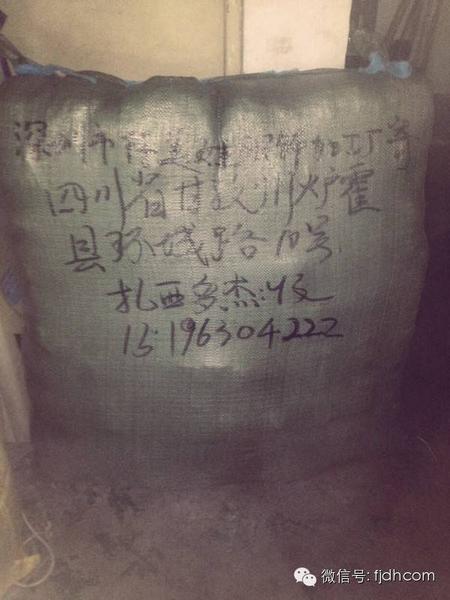 深圳市隆美燃服饰加工厂寄
四川省甘孜州炉霍
县环城路10号
扎西多杰:收
15196304222
微信号: fjdhcom